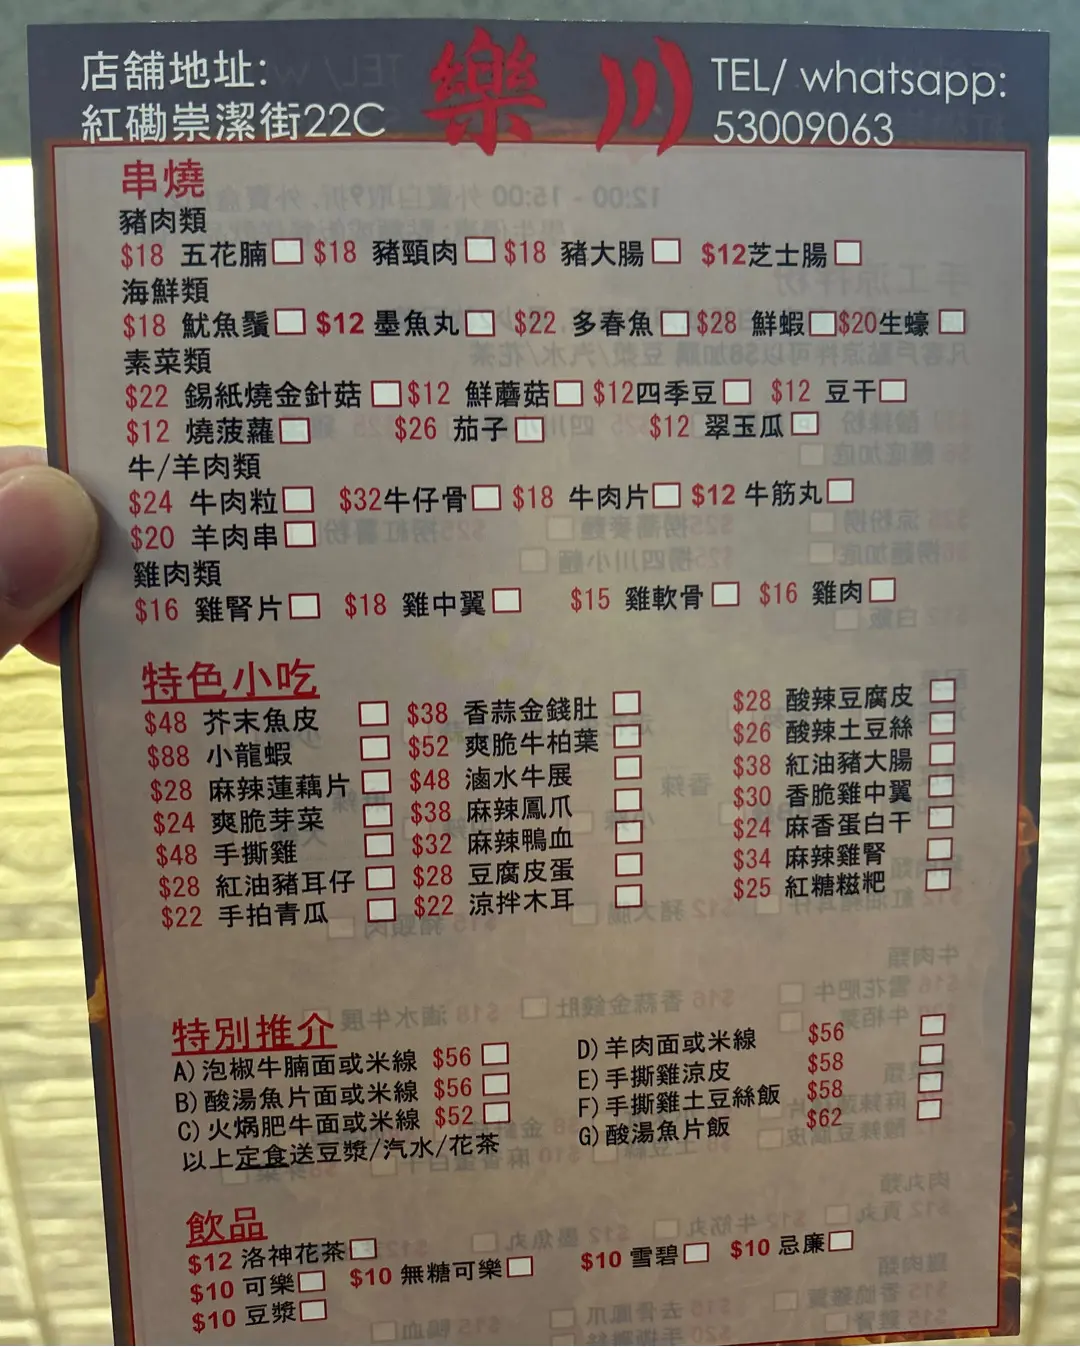 店舖地址:
紅磡崇潔街22C
樂川
TEL/ whatsapp:
53009063
串燒
豬肉類
$18 五花腩 $18 豬頸肉 $18 豬大腸 $12芝士腸
海鮮類
$18 魷魚鬚 $12 墨魚丸 $22 多春魚 $28 鮮蝦 $20生蠔
素菜類
$22 錫紙燒金針菇 $12 鮮蘑菇 $12四季豆 $12 豆干
$12 燒菠蘿 $26 茄子 $12 翠玉瓜
牛/羊肉類
$24 牛肉粒 $32牛仔骨 $18 牛肉片 $12 牛筋丸
$20 羊肉串
雞肉類
$16 雞腎片 $18 雞中翼 $15 雞軟骨 $16 雞肉
特色小吃
$48 芥末魚皮 $38 香蒜金錢肚 $28 酸辣豆腐皮
$88 小龍蝦 $52 爽脆牛柏葉 $26 酸辣土豆絲
$28 麻辣蓮藕片 $48 滷水牛展 $38 紅油豬大腸
$24 爽脆芽菜 $38 麻辣鳳爪 $30 香脆雞中翼
$48 手撕雞 $32 麻辣鴨血 $24 麻香蛋白干
$28 紅油豬耳仔 $28 豆腐皮蛋 $34 麻辣雞腎
$22 手拍青瓜 $22 涼拌木耳 $25 紅糖糍粑
特別推介
A)泡椒牛腩面或米線 $56
B)酸湯魚片面或米線 $56
C)火焗肥牛面或米線 $52
以上定食送豆漿/汽水/花茶
D)羊肉面或米線 $56
E)手撕雞涼皮 $58
F)手撕雞土豆絲飯 $58
G)酸湯魚片飯 $62
飲品
$12 洛神花茶
$10 可樂 $10 無糖可樂 $10 雪碧 $10 忌廉
$10 豆漿